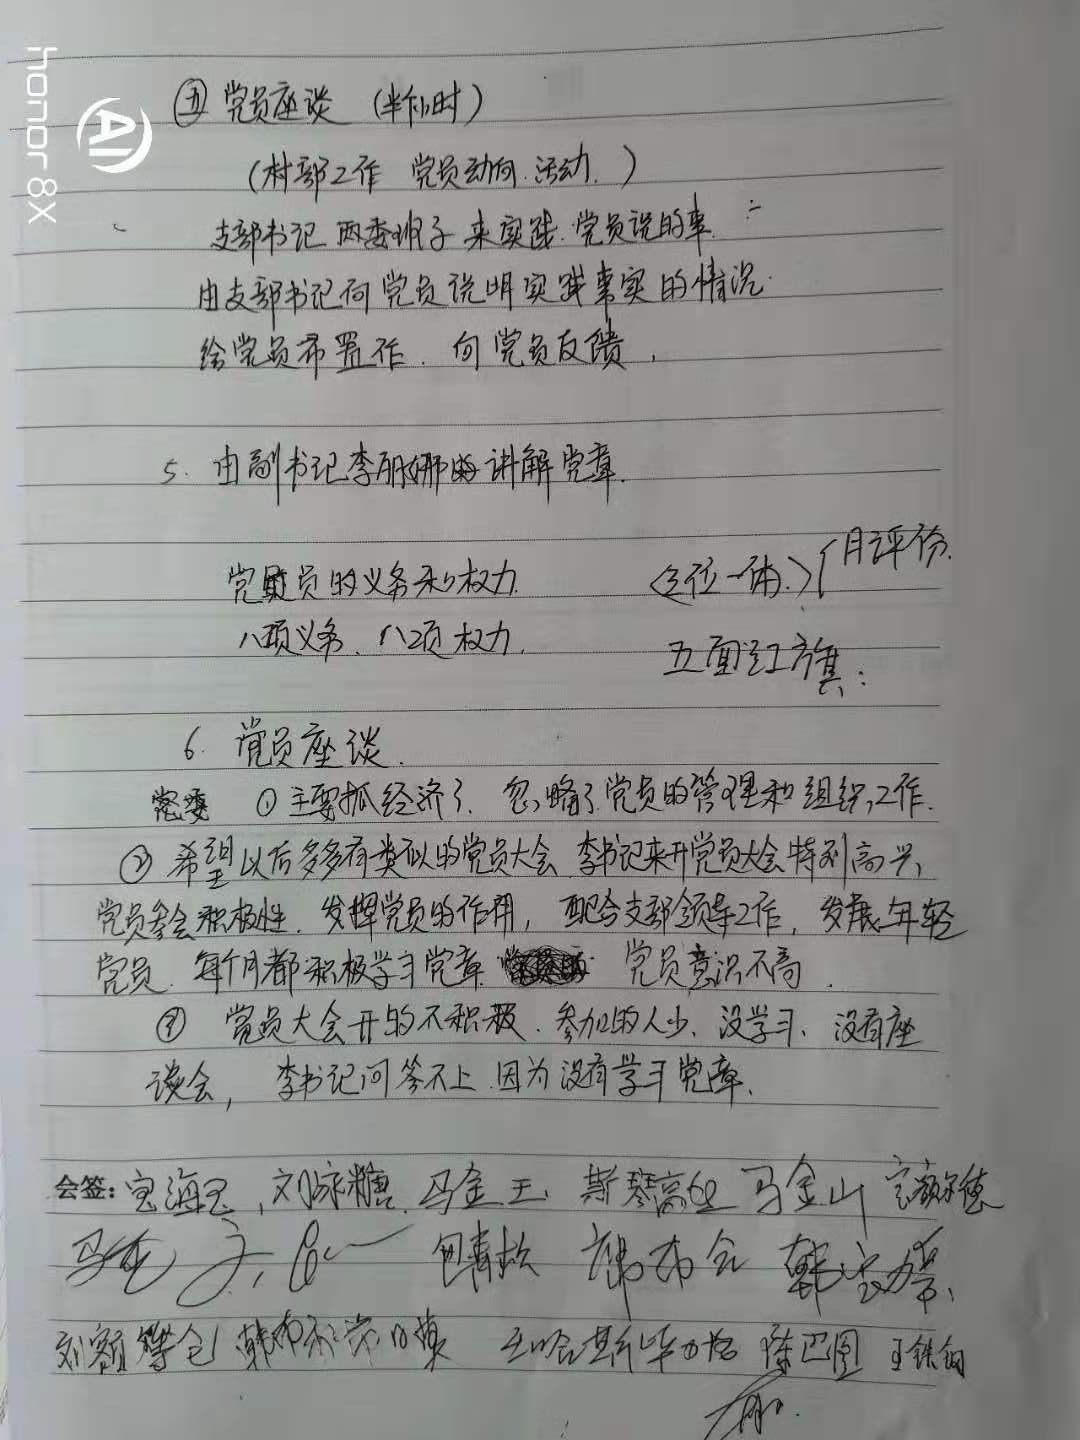 honor 8X
AI
㊄ 党员座谈 (半个小时)
(村部工作 党员动向.活动.)
支部书记 两委班子 来实践.党员说的事.
由支部书记向党员说明实践事实的情况.
给党员布置工作.向党员反馈,
5. 由副书记李丽娜 讲解党章.
党员的义务和权力. <三位一体.> 月评价.
八项义务. 八项权力. 五面红旗:
6. 党员座谈.
党委 ①主要抓经济了.忽略了党员的管理和组织工作.
② 希望以后多多有类似的党员大会 李书记来开党员大会特别高兴,
党员参会积极性.发挥党员的作用,配合支部领导工作,发展年轻
党员.每个月都积极学习党章. 党员意识不高.
③ 党员大会开的不积极.参加的人少、没学习、没有座
谈会, 李书记问答不上.因为没有学习党章.
会签: 宝海玉, 马金玉, 斯琴高娃 马金山
包青松 韩布仓
陈巴图 王铁钢